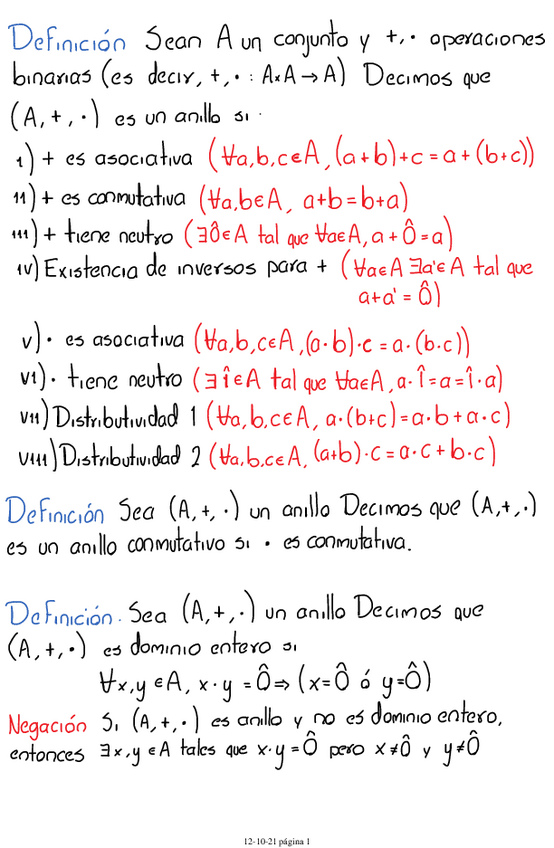 Definición Sean A un conjunto y +,· operaciones
binarias (es decir, +,· : A×A→A) Decimos que
(A,+,·) es un anillo si ·
i) + es asociativa (∀a,b,c∈A, (a+b)+c = a+(b+c))
ii) + es conmutativa (∀a,b∈A, a+b=b+a)
iii) + tiene neutro (∃Ô∈A tal que ∀a∈A, a+Ô=a)
iv) Existencia de inversos para + (∀a∈A ∃a'∈A tal que
a+a' = Ô)
v) · es asociativa (∀a,b,c∈A, (a·b)·c = a·(b·c))
vi) · tiene neutro (∃î∈A tal que ∀a∈A, a·î=a=î·a)
vii) Distributividad 1 (∀a,b,c∈A, a·(b+c)=a·b+a·c)
viii) Distributividad 2 (∀a,b,c∈A, (a+b)·c=a·c+b·c)
Definición Sea (A,+,·) un anillo Decimos que (A,+,·)
es un anillo conmutativo si · es conmutativa.
Definición. Sea (A,+,·) un anillo Decimos que
(A,+,·) es dominio entero si
∀x,y∈A, x·y = Ô ⇒ (x=Ô ó y=Ô)
Negación Si (A,+,·) es anillo y no es dominio entero,
entonces ∃x,y∈A tales que x·y=Ô pero x≠Ô y y≠Ô
12-10-21 página 1